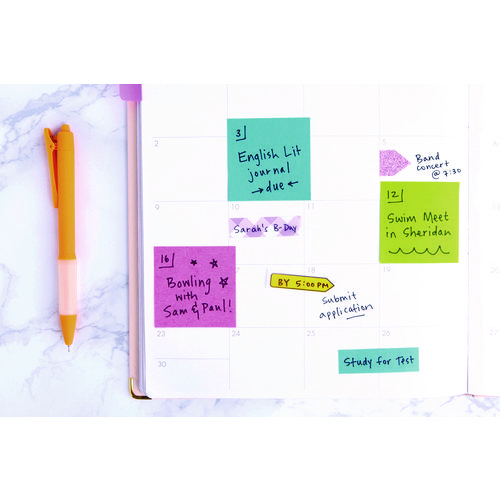 2
3
English Lit
journal
→due←
5
Band
concert
@ 7:30
9
10
11
12
Sarah's B-Day
Swim Meet
in Sheridan
16
Bowling
with
Sam & Paul!
17
18
19
BY 5:00 PM
Submit
application
23
24
25
26
Study for Test
30